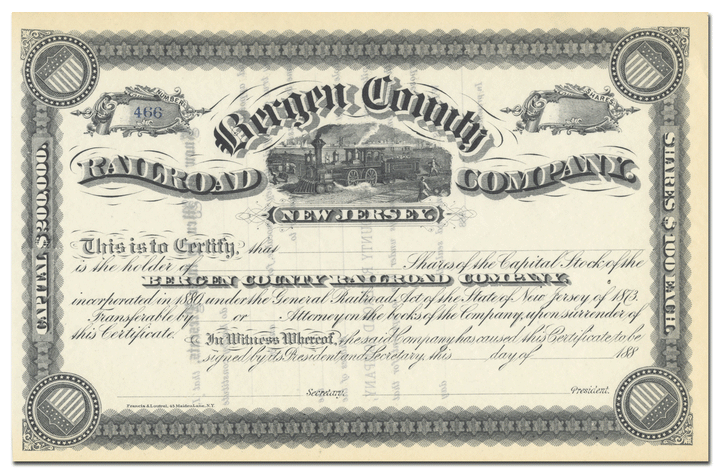 NUMBER
466
SHARES
Bergen County
RAILROAD COMPANY.
NEW JERSEY.
CAPITAL $200,000.
SHARES $100 EACH.
This is to Certify, that
is the holder of Shares of the Capital Stock of the
BERGEN COUNTY RAILROAD COMPANY,
incorporated in 1880 under the General Railroad Act of the State of New Jersey of 1873.
Transferable by or Attorney on the books of the Company, upon surrender of
this Certificate.
In Witness Whereof, the said Company has caused this Certificate to be
signed by its President and Secretary, this day of 188
Secretary. President.
Francis & Loutrel, 45 Maiden Lane, N.Y.